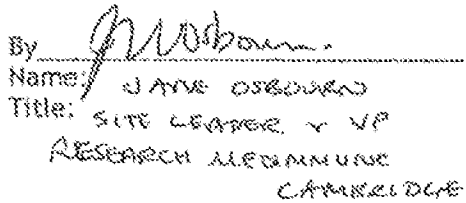 By J Osbourn.
Name: JANE OSBOURN
Title: SITE LEADER & VP
RESEARCH MEDIMMUNE
CAMBRIDGE